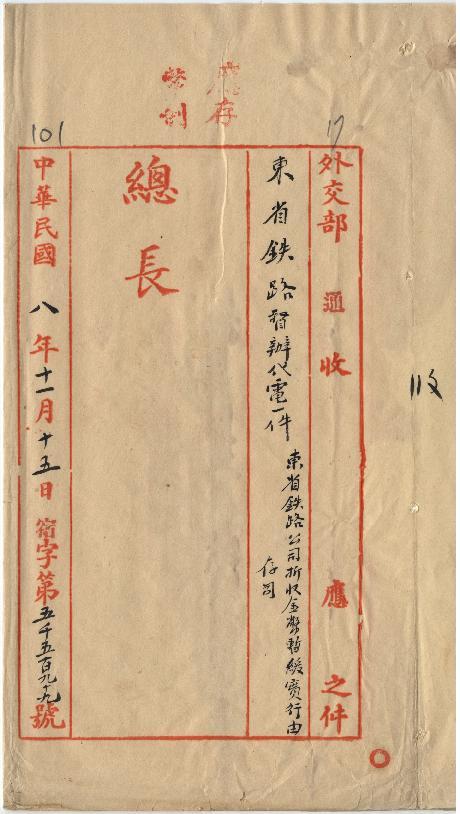 應存
幣制
17
101
外交部 通 收 應 之件
東省鉄路督辦代電一件 東省鉄路公司折收金幣暫緩實行由
存司
總長
中華民國八年十一月十五日 宿字第五千五百九十九號
收